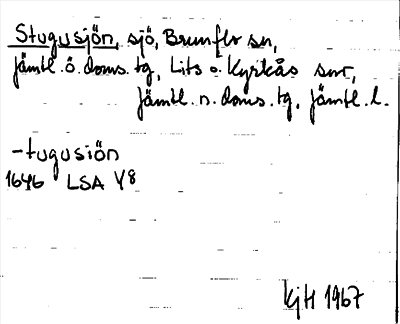 Stugusjön, sjö, Brunflo sn,
Jämtl. ö. doms. tg, Lits o. Kyrkås snr,
Jämtl. n. doms. tg, Jämtl. l.
-tugusiön
1646 LSA Y8
KjH 1967